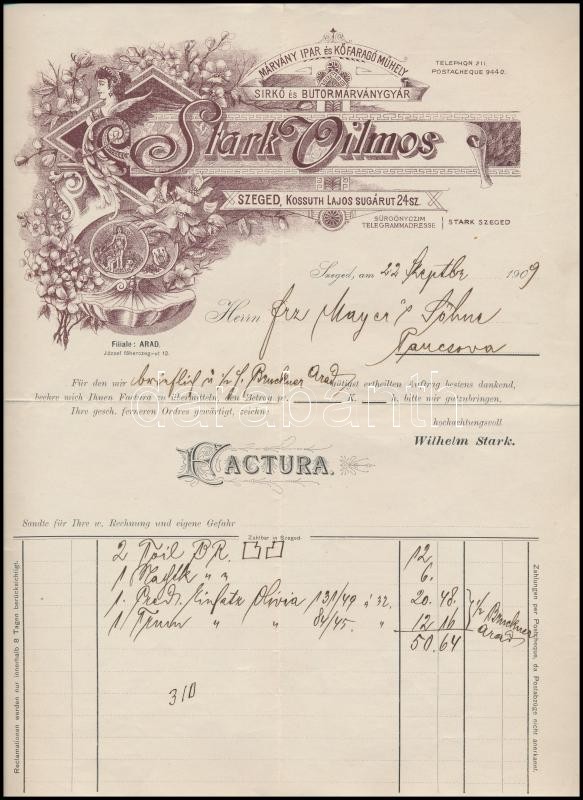 MÁRVÁNY IPAR ÉS KŐFARAGÓ MŰHELY
SIRKŐ ÉS BUTORMÁRVÁNYGYÁR
TELEPHON 211.
POSTACHEQUE 9440.
Stark Vilmos
SZEGED, KOSSUTH LAJOS SUGÁRUT 24 SZ.
SÜRGÖNYCZIM
TELEGRAMMADRESSE
STARK SZEGED
Szeged, am 22 Septbr 1909
Herrn Frz Mayer's Söhne
Pancsova
Filiale: ARAD.
József főherczeg-ut 13.
Für den mir Bruckner Arad gütigst ertheilten Auftrag bestens dankend,
beehre mich Ihnen Factura zu übermitteln, den Betrag pr. K. h. bitte mir gutzubringen.
Ihre gesch. ferneren Ordres gewärtigt, zeichne
hochachtungsvoll
Wilhelm Stark.
darabanth
FACTURA.
Sandte für Ihre w. Rechnung und eigene Gefahr
Zahlbar in Szeged.
2 Toil BR. 12
1 Nachtk " " 6.
1. Pred. Einsatz Olivia 131/49 à 32. 20.48.
1 " " 84/45. " 12 16
50.64
Bruckner
Arad
310
Reclamationen werden nur innerhalb 8 Tagen berücksichtigt.
Zahlungen per Postcheque, da Postabzüge nicht anerkannt.